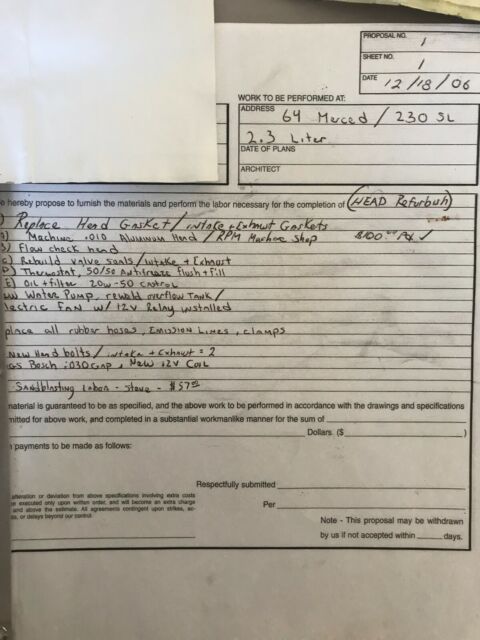 PROPOSAL NO. 1
SHEET NO. 1
DATE 12/18/06
WORK TO BE PERFORMED AT:
ADDRESS 64 Merced / 230 SL
2.3 Liter
DATE OF PLANS
ARCHITECT
hereby propose to furnish the materials and perform the labor necessary for the completion of (HEAD Refurbish)
) Replace Head Gasket / intake + Exhaust Gaskets
) Machine .010 Aluminum Head / RPM Machine Shop $100.00 Pd ✓
3) Flow check head
c) Rebuild valve seals / intake + Exhaust
D) Thermostat, 50/50 Antifreeze flush + fill
E) Oil + filter 20w-50 Castrol
Water Pump, reweld overflow TANK /
lectric FAN w/ 12V Relay installed
place all rubber hoses, Emission Lines, clamps
New Head bolts / intake + Exhaust = 2
gs Bosch .030 Gap, New 12V Coil
Sandblasting Labor - Steve - $57.00
material is guaranteed to be as specified, and the above work to be performed in accordance with the drawings and specifications
mitted for above work, and completed in a substantial workmanlike manner for the sum of
Dollars. ($ )
payments to be made as follows:
Respectfully submitted
alteration or deviation from above specifications involving extra costs
executed only upon written order, and will become an extra charge
and above the estimate. All agreements contingent upon strikes, ac-
ts, or delays beyond our control.
Per
Note - This proposal may be withdrawn
by us if not accepted within days.